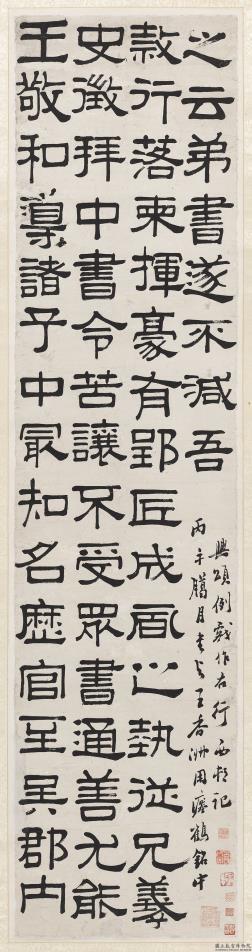 王敬和導諸子中冣知名歷官至吳郡內
史徵拜中書令苦讓不受眾書通善尤能
隸行落柬揮豪有郢匠成風之埶從兄羲
之云弟書遂不減吾
丙子臘月書與王杏洲用瘞鶴銘中
興頌例戲作右行 西邨記